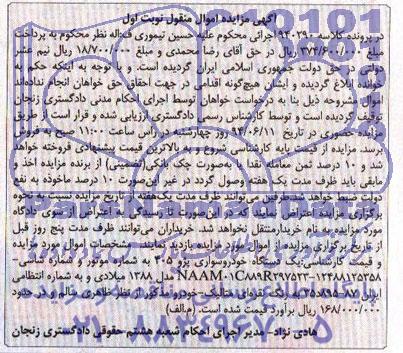 آگهی مزایده اموال منقول نوبت اول
در پرونده کلاسه ۹۴۰۲۹۰ اجرائی محکوم علیه حسین تیموری ف:اله نظر محکوم به پرداخت
مبلغ ۳۷۴/۶۰۰/۰۰۰ ریال در حق آقای رضا محمدی و مبلغ ۱۸/۷۰۰/۰۰۰ ریال نیم عشر
دولتی در حق دولت جمهوری اسلامی ایران گردیده است. و با توجه به اینکه حکم به
خوانده ابلاغ گردیده و ایشان هیچ‌گونه اقدامی در جهت احقاق حق خواهان انجام نداده‌اند
اموال مشروحه ذیل بنا به درخواست خواهان توسط اجرای احکام مدنی دادگستری زنجان
توقیف گردیده است و توسط کارشناس رسمی دادگستری ارزیابی شده و قرار است از طریق
مزایده حضوری در تاریخ ۹۴/۰۶/۱۱ روز چهارشنبه در راس ساعت ۱۱:۰۰ صبح به فروش
برسد. مزایده از قیمت پایه کارشناسی شروع و به بالاترین قیمت پیشنهادی فروخته خواهد
شد و ۱۰ درصد ثمن معامله نقدا به‌صورت چک بانکی(تضمینی) از برنده مزایده اخذ و
مابقی باید ظرف مدت یک هفته وصول گردد در غیر این‌صورت ۱۰ درصد ماخوذه به نفع
دولت ضبط خواهد شد. طرفین می‌توانند ظرف مدت یک‌هفته از تاریخ مزایده نسبت به نحوه
برگزاری مزایده اعتراض نمایند که در این‌صورت تا رسیدگی به اعتراض از سوی دادگاه
مورد مزایده به نام خریدار منتقل نخواهد شد. خریداران می‌توانند ظرف مدت پنج روز قبل
از تاریخ برگزاری مزایده از اموال مورد مزایده بازدید نمایند. مشخصات اموال مورد مزایده
و قیمت کارشناسی: یک دستگاه خودروسواری پژو ۴۰۵ به شماره موتور و شماره شاسی-
۱۲۴۸۸۱۲۵۳۵۸-NAAM۰۱C۸۸۹R۲۹۷۵۲۳ مدل ۱۳۸۸ میلادی و به شماره انتظامی
ایران ۸۷- ۸۹۵د۳۵ به رنگ نقره‌ای متالیک- خودرو مذکور از نظر ظاهری سالم و در حدود
۱۶۸/۰۰۰/۰۰۰ ریال می‌باشد. (م.الف)
هادی نژاد- مدیر اجرای احکام شعبه هشتم حقوقی دادگستری زنجان